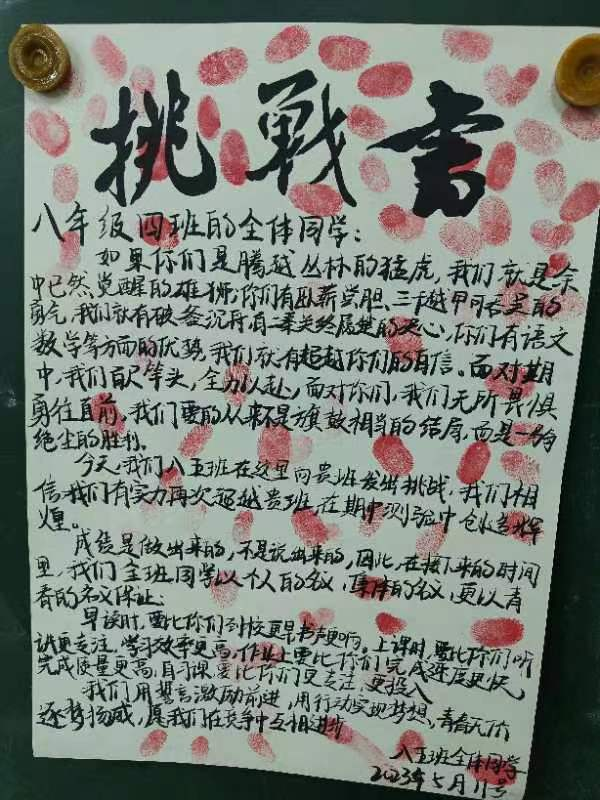 挑戰書
八年级四班的全体同学：
如果你们是腾越丛林的猛虎，我们就是余
中已然觉醒的雄狮，你们有卧薪尝胆、三千越甲可吞吴的
勇气，我们就有破釜沉舟，百二秦关终属楚的决心，你们有语文
数学等方面的优势，我们就有超越你们的自信。面对期
中，我们百尺竿头，全力以赴，面对你们，我们无所畏惧
勇往直前，我们要的从来不是旗鼓相当的结局，而是一场
绝尘的胜利。
今天，我们八五班在这里向贵班发出挑战，我们相
信我们有实力再次超越贵班，在期中测验中创造辉
煌。
成绩是做出来的，不是说出来的，因此，在接下来的时间
里，我们全班同学以个人的名义，集体的名义，更以青
春的名义保证：
早读时，要比你们到校更早书声更响。上课时，要比你们听
讲更专注，学习效率更高，作业上要比你们完成进度更快，
完成质量更高，自习课要比你们更专注，更投入
我们用誓言激励前进，用行动实现梦想、青春无价
逐梦扬威，愿我们在竞争中互相进步
八五班全体同学
2023年5月11号